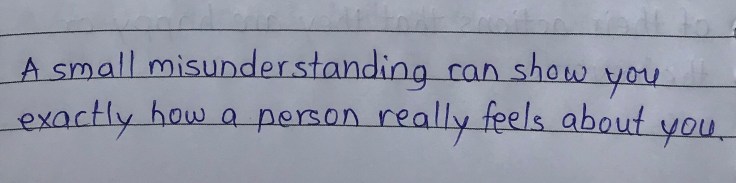 A small misunderstanding can show you
exactly how a person really feels about you.